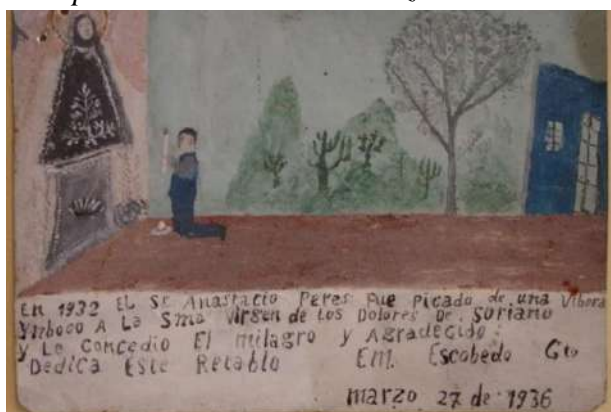 En 1932 EL Sr Anastacio Peres Fue Picado de una Vibora
Ynboco A La Sma Virgen de Los Dolores De Soriano
y Le Concedio El milagro y Agradecido
Dedica Este Retablo Em. Escobedo Gto
marzo 27 de 1936